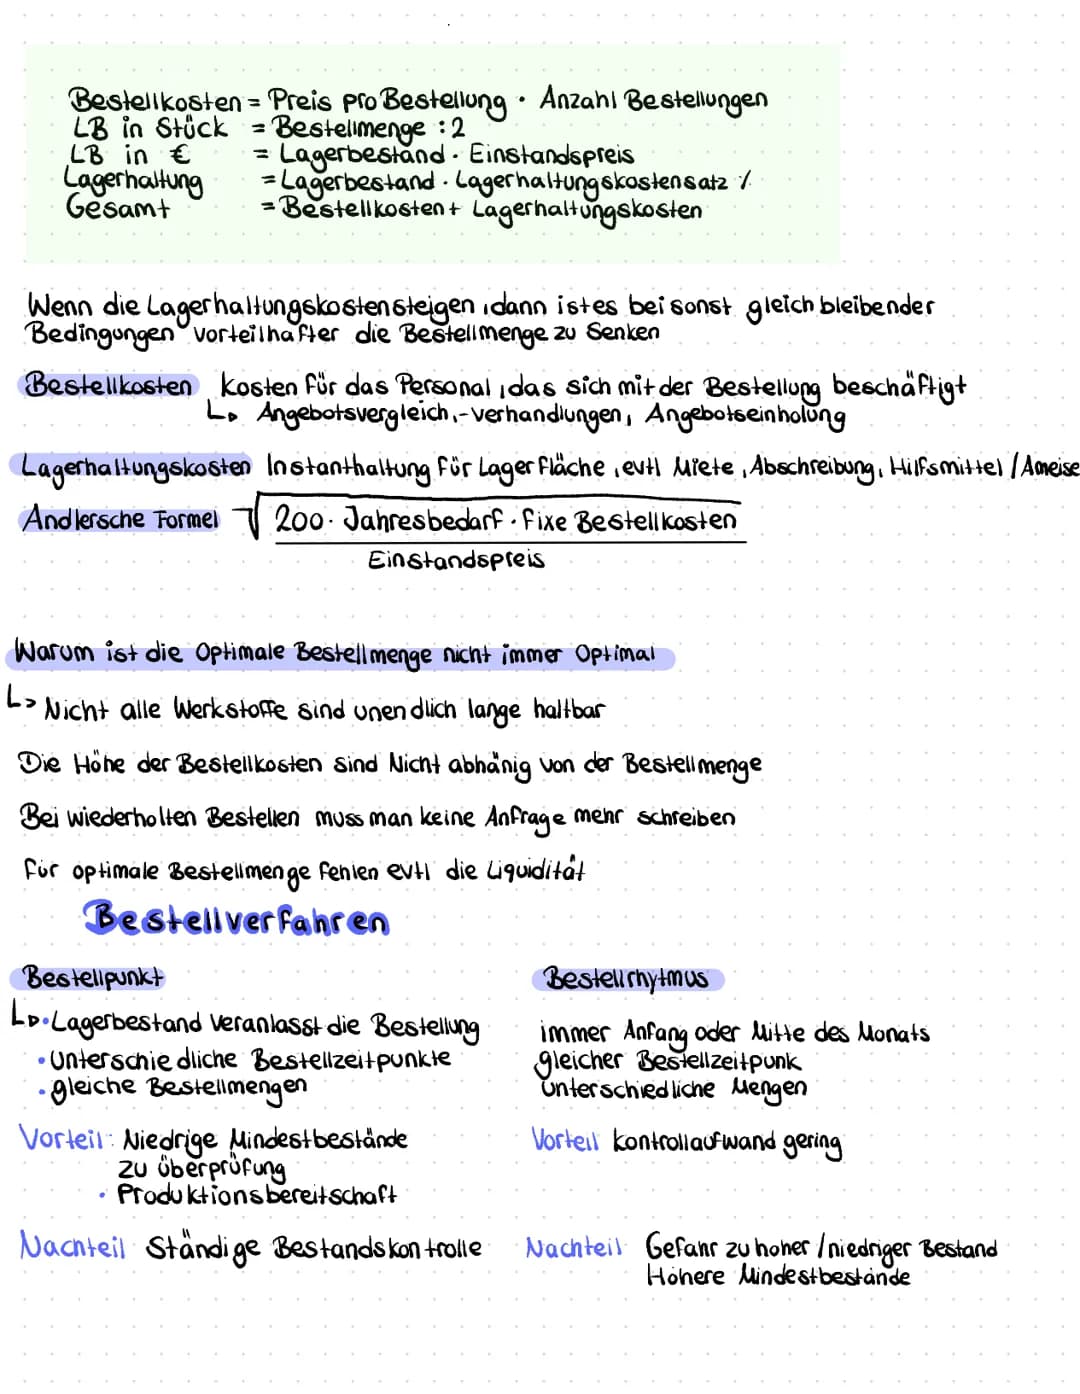 Bestellkosten = Preis pro Bestellung · Anzahl Bestellungen
LB in Stück = Bestellmenge : 2
LB in € = Lagerbestand · Einstandspreis
Lagerhaltung = Lagerbestand · Lagerhaltungskostensatz %
Gesamt = Bestellkosten + Lagerhaltungskosten
Wenn die Lagerhaltungskosten steigen, dann ist es bei sonst gleich bleibender
Bedingungen vorteilhafter die Bestellmenge zu Senken
Bestellkosten Kosten für das Personal, das sich mit der Bestellung beschäftigt
↳ Angebotsvergleich, -verhandlungen, Angebotseinholung
Lagerhaltungskosten Instanthaltung für Lagerfläche, evtl Miete, Abschreibung, Hilfsmittel / Ameise
Andlersche Formel √ 200 · Jahresbedarf · fixe Bestellkosten
Einstandspreis
Warum ist die Optimale Bestellmenge nicht immer Optimal
↳ Nicht alle Werkstoffe sind unendlich lange haltbar
Die Höhe der Bestellkosten sind Nicht abhänig von der Bestellmenge
Bei wiederholten Bestellen muss man keine Anfrage mehr schreiben
für optimale Bestellmenge fehlen evtl die Liquidität
Bestellverfahren
Bestellpunkt
↳ • Lagerbestand veranlasst die Bestellung
• Unterschiedliche Bestellzeitpunkte
• gleiche Bestellmengen
Vorteil: Niedrige Mindestbestände
zu überprüfung
• Produktionsbereitschaft
Nachteil Ständige Bestandskontrolle
Bestellrhytmus
immer Anfang oder Mitte des Monats
gleicher Bestellzeitpunk
Unterschiedliche Mengen
Vorteil kontrollaufwand gering
Nachteil Gefahr zu hoher / niedriger Bestand
Höhere Mindestbestände